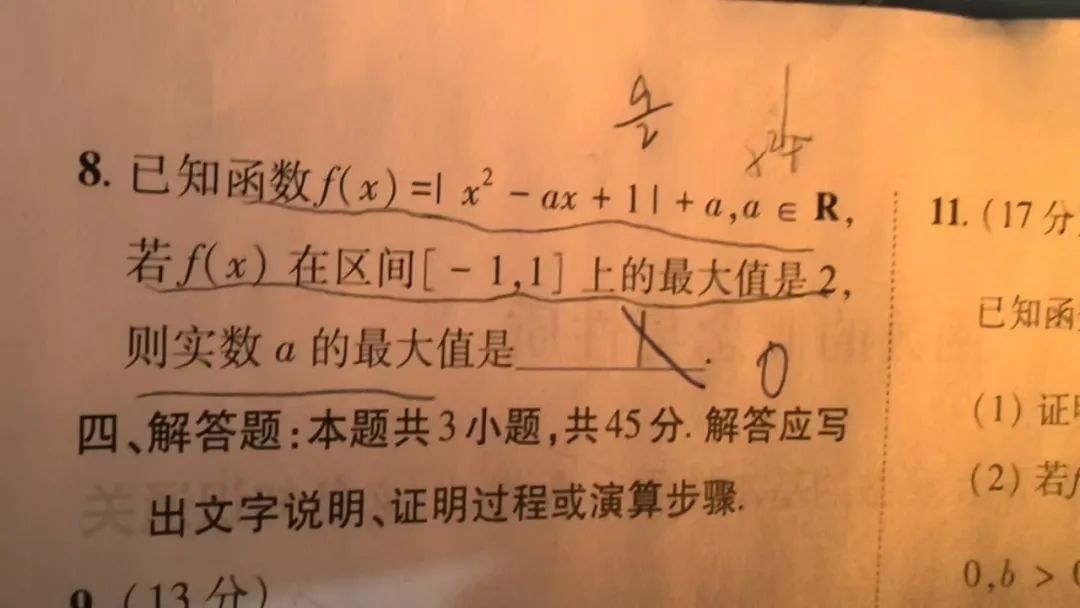 a/2
8. 已知函数f(x)=| x² - ax + 1 | + a, a ∈ R,
若f(x) 在区间[ - 1,1] 上的最大值是2,
则实数 a 的最大值是 1 . 0
四、解答题:本题共3小题,共45分. 解答应写
出文字说明、证明过程或演算步骤.
9. (13分)
11. (17分
已知函
(1) 证
(2) 若f
0,b > 0